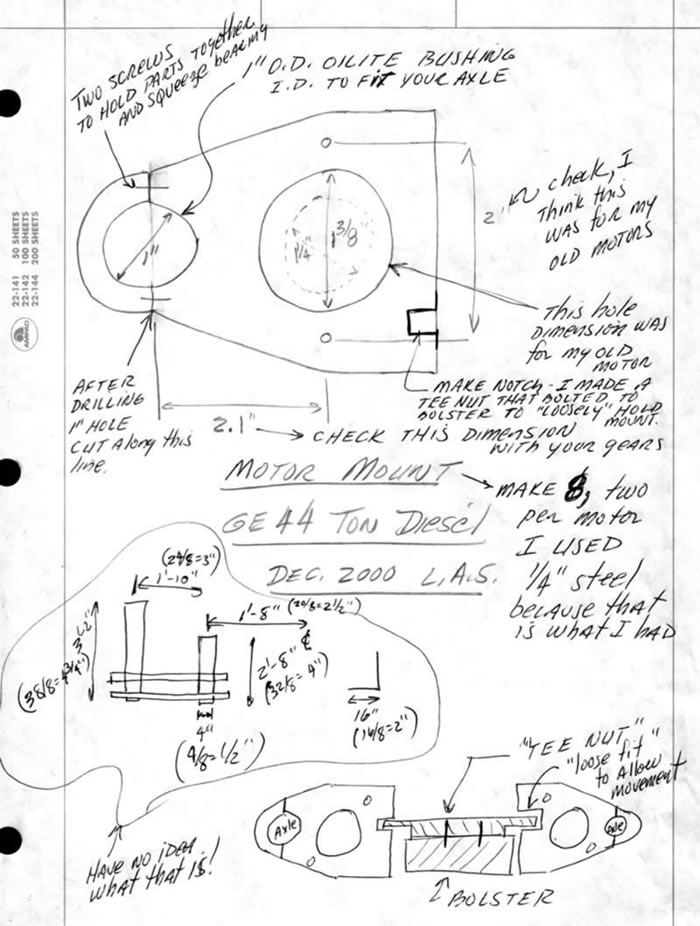 TWO SCREWS
TO HOLD PARTS TOGETHER
AND SQUEEZE BEARING
1" O.D. OILITE BUSHING
I.D. TO FIT YOUR AXLE
22-141 50 SHEETS
22-142 100 SHEETS
22-144 200 SHEETS
AMPAD
1"
1 1/4"
1 3/8"
2"
check, I
THINK THIS
WAS FOR MY
OLD MOTORS
This hole
DIMENSION WAS
for MY OLD
MOTOR
MAKE NOTCH - I MADE A
TEE NUT THAT BOLTED TO
BOLSTER TO "LOOSELY" HOLD
MOUNT.
AFTER
DRILLING
1" HOLE
CUT Along this
line.
2.1"
CHECK THIS DIMENSION
WITH YOUR GEARS
MOTOR MOUNT
GE 44 TON DIESEL
DEC. 2000 L.A.S.
MAKE 8, two
per motor
I USED
1/4" steel
because that
is what I HAD
(24/8=3")
1'-10"
1'-8" (20/8=2 1/2")
3'-2"
(38/8=4 3/4")
2'-8"
(32/8=4")
4"
(4/8=1/2")
16"
(16/8=2")
HAVE NO IDEA
WHAT THAT IS!
"TEE NUT"
"loose fit"
to Allow
movement
Axle
Axle
BOLSTER